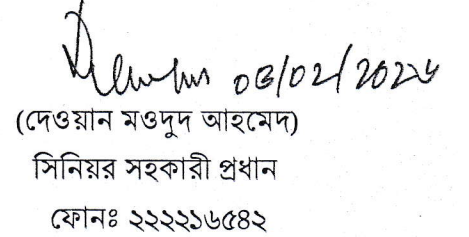 03/02/2026
(দেওয়ান মওদুদ আহমেদ)
সিনিয়র সহকারী প্রধান
ফোনঃ ২২২২১৬৫৪২